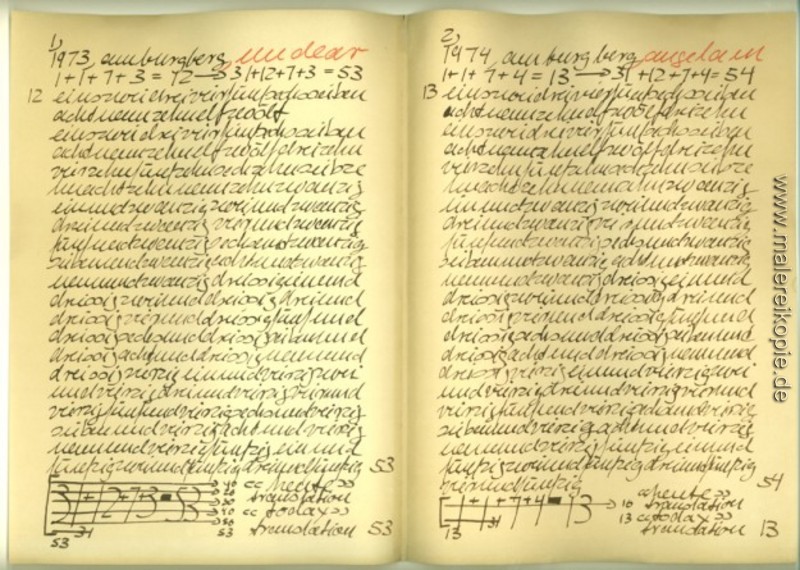 1,
1973, am burgberg, un dear
1+1+7+3 = 12 → 31+12+7+3 = 53
12 einszweidreivierfünfsechssieben
achtneunzehnelfzwölf
einszweidreivierfünfsechssieben
achtneunzehnelfzwölfdreizehn
vierzehnfünfzehnsechzehnsiebze
hnachtzehnneunzehnzwanzig
einundzwanzigzweiundzwanzig
dreiundzwanzigvierundzwanzig
fünfundzwanzigsechsundzwanzig
siebenundzwanzigachtundzwanzig
neunundzwanzigdreissigeinund
dreissigzweiunddreissigdreiund
dreissigvierunddreissigfünfund
dreissigsechsunddreissigsiebenund
dreissigachtunddreissigneunund
dreissigvierzigeinundvierzigzwei
undvierzigdreiundvierzigvierund
vierzigfünfundvierzigsechsundvierzig
siebenundvierzigachtundvierzig
neunundvierzigfünfzigeinund
fünfzigzweiundfünfzigdreiundfünfzig 53
31+12+7+3=53
<<heute>>
translation
<<today>>
translation 53
31
53
2,
1974, am burgberg
1+1+7+4 = 13 → 31+12+7+4 = 54
13 einszweidreivierfünfsechssieben
achtneunzehnelfzwölfdreizehn
einszweidreivierfünfsechssieben
achtneunzehnelfzwölfdreizehn
vierzehnfünfzehnsechzehnsiebze
hnachtzehnneunzehnzwanzig
einundzwanzigzweiundzwanzig
dreiundzwanzigvierundzwanzig
fünfundzwanzigsechsundzwanzig
siebenundzwanzigachtundzwanzig
neunundzwanzigdreissigeinund
dreissigzweiunddreissigdreiund
dreissigvierunddreissigfünfund
dreissigsechsunddreissigsiebenund
dreissigachtunddreissigneunund
dreissigvierzigeinundvierzigzwei
undvierzigdreiundvierzigvierund
vierzigfünfundvierzigsechsundvierzig
siebenundvierzigachtundvierzig
neunundvierzigfünfzigeinund
fünfzigzweiundfünfzigdreiundfünfzig
vierundfünfzig 54
1+1+7+4=13
<<heute>>
10 translation
13 <<today>>
translation 13
31
13
www.malereikopie.de